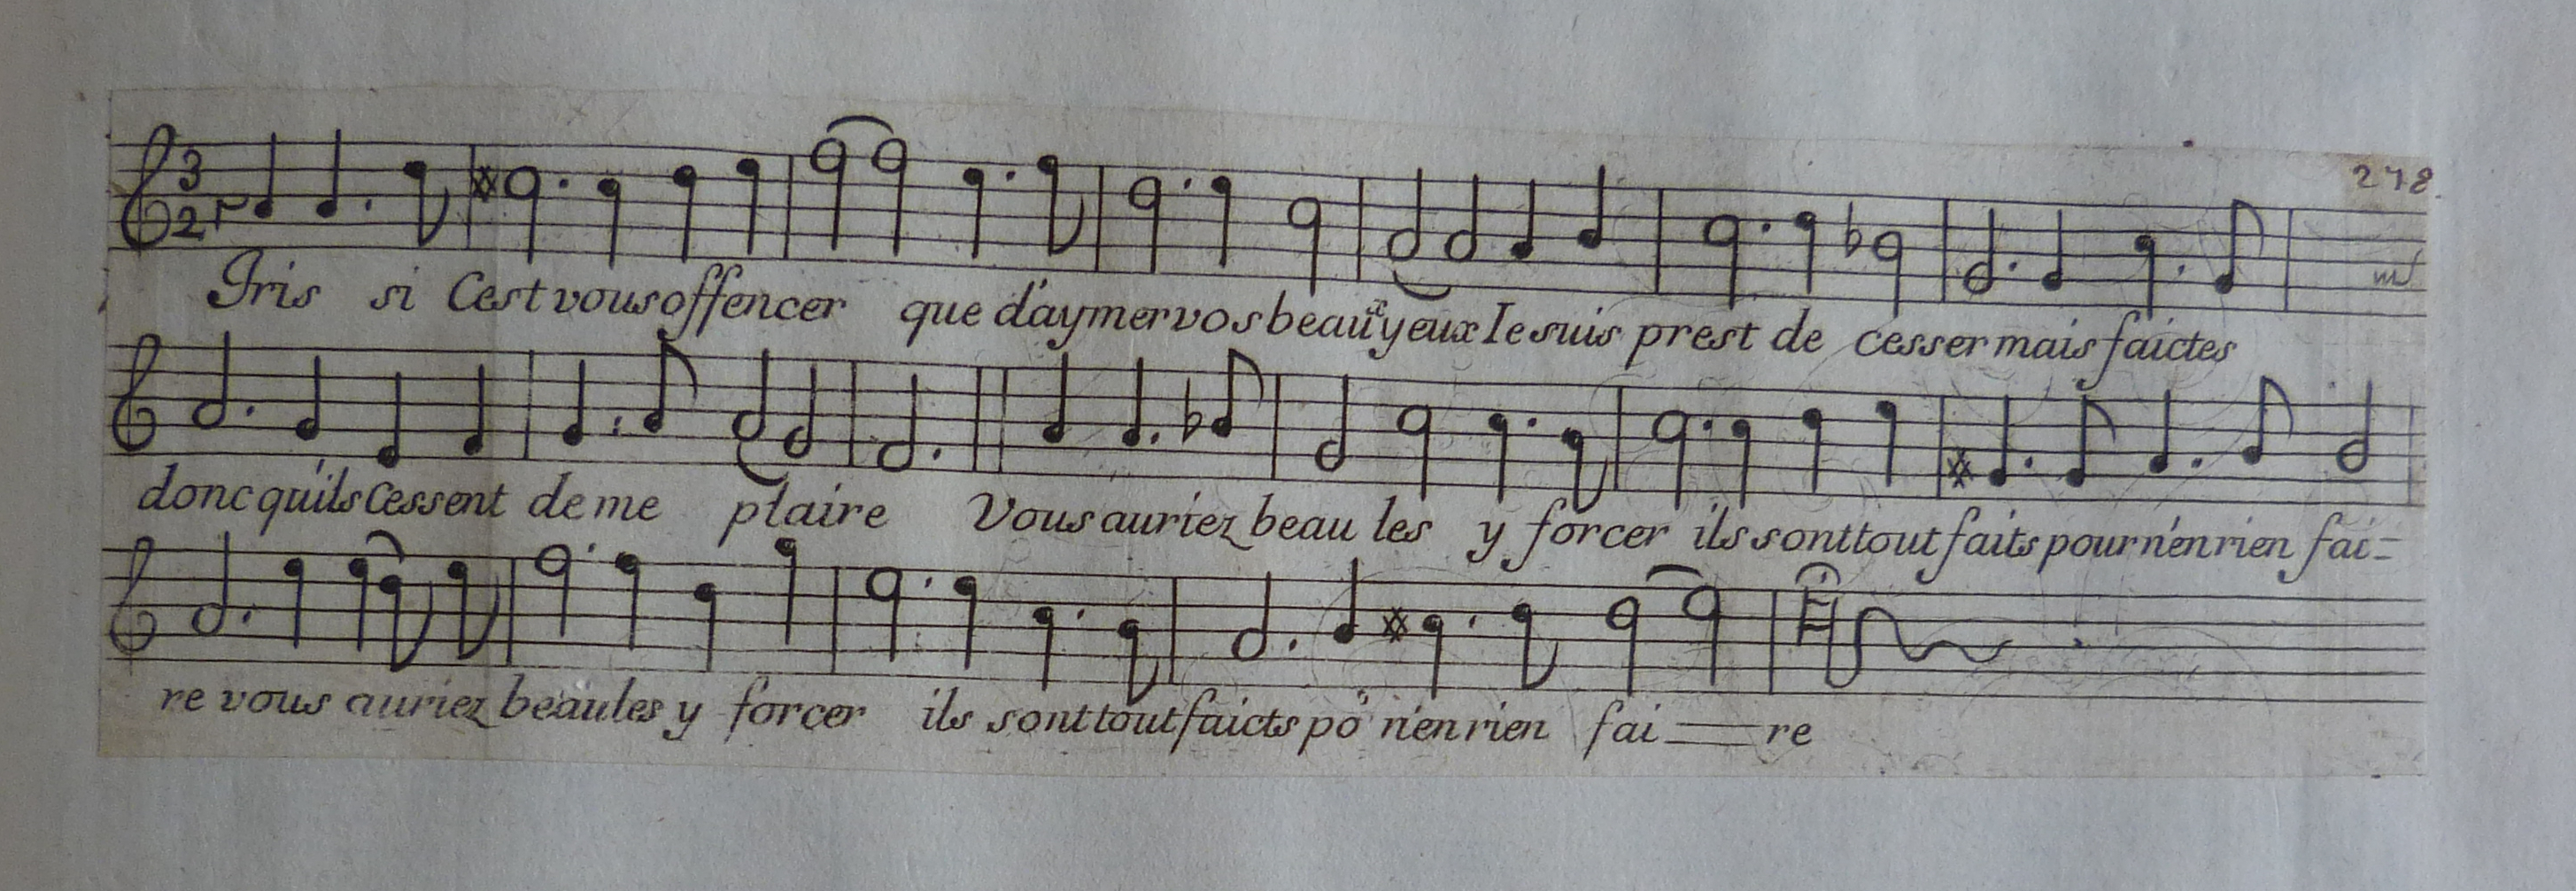 3
2
278
Iris si Cest vous offencer que d'aymer vos beaux yeux Ie suis prest de cesser mais faictes
donc qu'ils cessent de me plaire Vous auriez beau les y forcer ils sont tout faits pour n'en rien fai=
re vous auriez beau les y forcer ils sont tout faicts po^r n'en rien fai=re